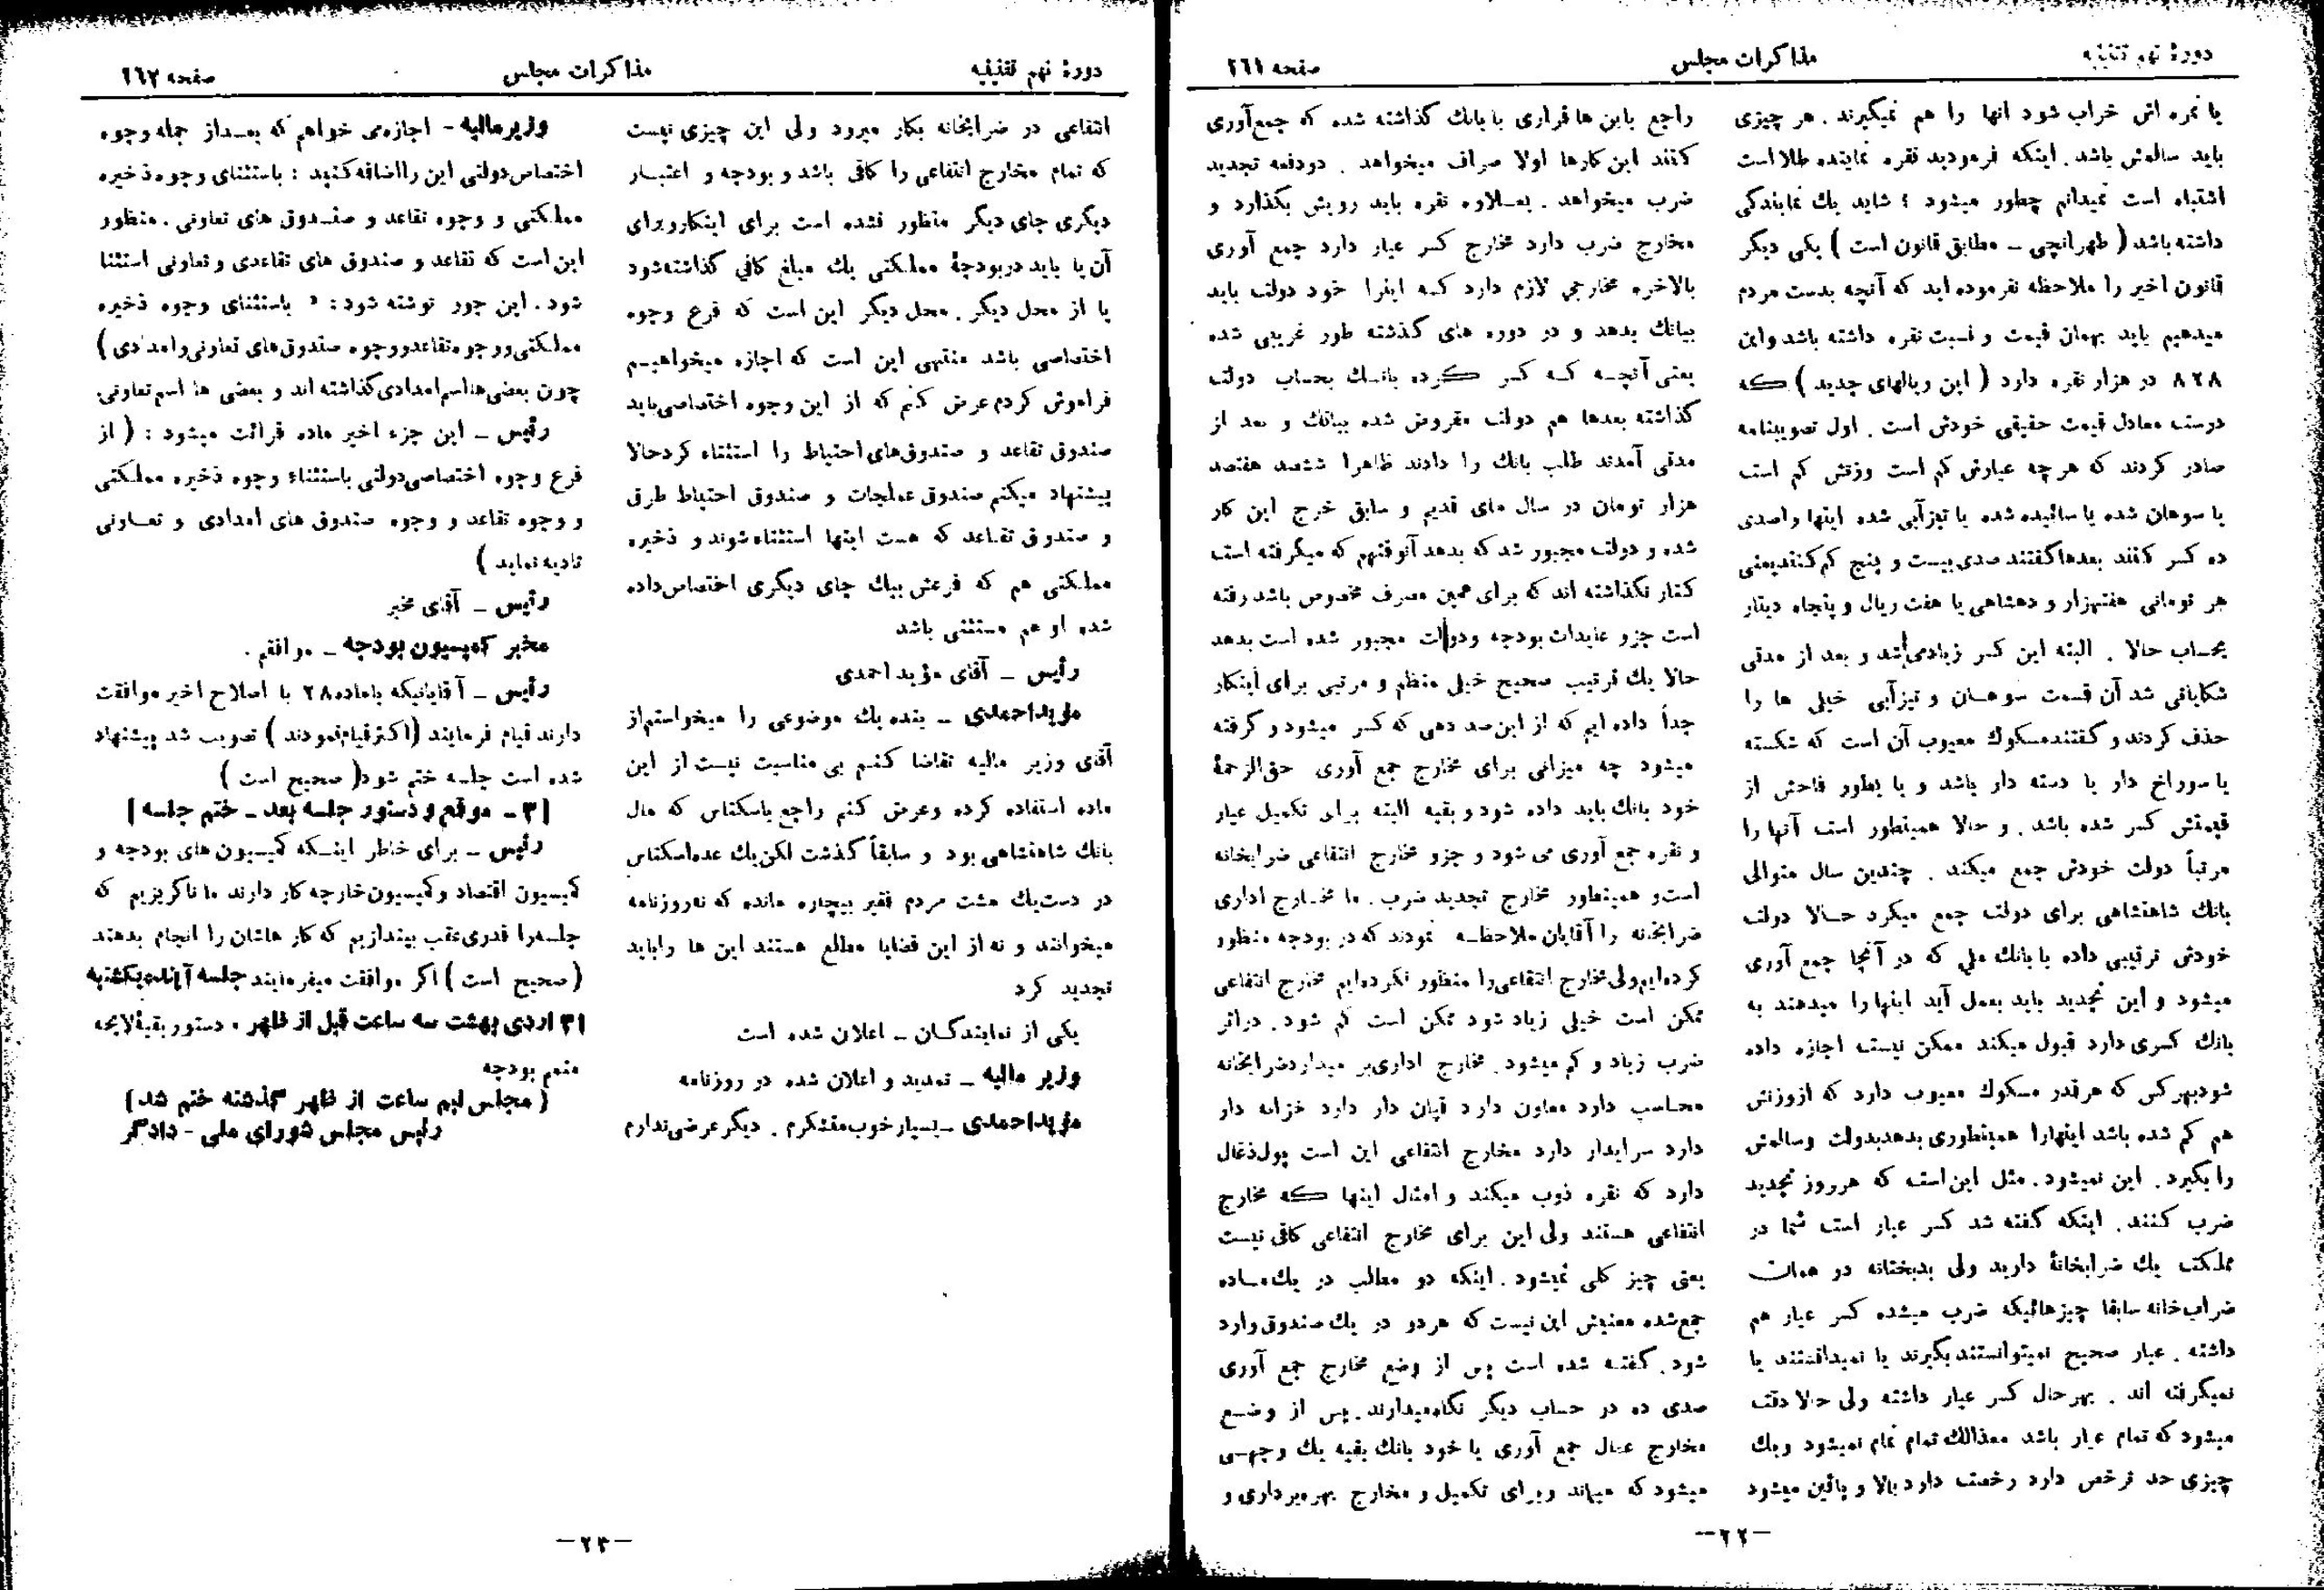 دورهٔ نهم تقنینیه
مذاکرات مجلس
صفحه ۲۶۱
یا نمره اش خراب شود انها را هم نمیگیرند . هر چیزی
باید سالمش باشد . اینکه فرمودید نقره نماینده طلا است
اشتباه است نمیدانم چطور میشود ؛ شاید یك نمایندگی
داشته باشد ( طهرانچی ـ مطابق قانون است ) یکی دیگر
قانون اخیر را ملاحظه نفرموده اید که آنچه بدست مردم
میدهیم باید بهمان قیمت و نسبت نقره داشته باشد و این
۸۲۸ در هزار نقره دارد ( این ریالهای جدید ) که
درست معادل قیمت حقیقی خودش است . اول تصویبنامه
صادر کردند که هر چه عیارش کم است وزنش کم است
یا سوهان شده یا سائیده شده یا تیزآبی شده اینها را صدی
ده کسر کنند بعدها گفتند صدی بیست و پنج کم کنند یعنی
هر تومانی هفتهزار و دهشاهی یا هفت ریال و پنجاه دینار
بحساب حالا . البته این کسر زیادی شد و بعد از مدتی
شکایاتی شد آن قسمت سوهان و تیزآبی خیلی ها را
حذف کردند و گفتند مسکوك معیوب آن است که شکسته
یا سوراخ دار یا دسته دار باشد و یا بطور فاحش از
قیمتش کسر شده باشد . و حالا همینطور است آنها را
مرتباً دولت خودش جمع میکند . چندین سال متوالی
بانك شاهنشاهی برای دولت جمع میکرد حالا دولت
خودش ترتیبی داده با بانك ملی که در آنجا جمع آوری
میشود و این تجدید باید بعمل آید اینها را میدهند به
بانك کسری دارد قبول میکند ممکن نیست اجازه داده
شود بهر کس که هر قدر مسکوك معیوب دارد که از وزنش
هم کم شده باشد اینهارا همینطوری بدهد بدولت و سالمش
را بگیرد . این نمیشود . مثل این است که هر روز تجدید
ضرب کنند . اینکه گفته شد کسر عیار است شما در
مملکت یك ضرابخانهٔ دارید ولی بدبختانه در همان
ضراب خانه سابقا چیزهائیکه ضرب میشده کسر عیار هم
داشته . عیار صحیح نمیتوانستند بگیرند یا نمیدانستند یا
نمیگرفته اند . بهر حال کسر عیار داشته ولی حالا دقت
میشود که تمام عیار باشد معذالك تمام تمام نمیشود و یك
چیزی حد ترخص دارد رخصت دارد بالا و پائین میشود
راجع باین ها قراری با بانك گذاشته شده که جمع آوری
کنند این کارها اولا صراف میخواهد . دودفعه تجدید
ضرب میخواهد . بعلاوه نقره باید رویش بگذارد و
مخارج ضرب دارد مخارج کسر عیار دارد جمع آوری
بالاخره مخارجی لازم دارد که اینرا خود دولت باید
ببانك بدهد و در دوره های گذشته طور غریبی شده
یعنی آنچه که کسر کرده بانك بحساب دولت
گذاشته بعدها هم دولت مقروض شده ببانك و بعد از
مدتی آمدند طلب بانك را دادند ظاهرا ششصد هفتصد
هزار تومان در سال های قدیم و سابق خرج این کار
شده و دولت مجبور شد که بدهد آنوقتهم که میگرفته است
کنار نگذاشته اند که برای همین مصرف مخصوص باشد رفته
است جزو عایدات بودجه و دولت مجبور شده است بدهد
حالا یك ترتیب صحیح خیلی منظم و مرتبی برای اینکار
جداً داده ایم که از این صد دهی که کسر میشود و گرفته
میشود چه میزانی برای مخارج جمع آوری حق الزحمهٔ
خود بانك باید داده شود و بقیه البته برای تکمیل عیار
و نقره جمع آوری می شود و جزو مخارج انتفاعی ضرابخانه
است و همینطور مخارج تجدید ضرب . ما مخارج اداری
ضرابخانه را آقایان ملاحظه نمودند که در بودجه منظور
کرده ایم ولی مخارج انتفاعی را منظور نکرده ایم مخارج انتفاعی
ممکن است خیلی زیاد شود ممکن است کم شود . در اثر
ضرب زیاد و کم میشود . مخارج اداری بر میدارد ضرابخانه
محاسب دارد معاون دارد قپان دار دارد خزانه دار
دارد سرایدار دارد مخارج انتفاعی این است پول ذغال
دارد که نقره ذوب میکند و امثال اینها که مخارج
انتفاعی هستند ولی این برای مخارج انتفاعی کافی نیست
یعنی چیز کلی نمیشود . اینکه دو مطلب در یك ماده
جمع شده معنیش این نیست که هردو در یك صندوق وارد
شود . گفته شده است پس از وضع مخارج جمع آوری
صدی ده در حساب دیگر نگاه میدارند . پس از وضع
مخارج عمال جمع آوری یا خود بانك بقیه یك وجهی
میشود که میماند و برای تکمیل و مخارج بهره برداری و
ـ۲۲ـ
دورهٔ نهم تقنینیه
مذاکرات مجلس
صفحه ۲۶۲
انتفاعی در ضرابخانه بکار میرود ولی این چیزی نیست
که تمام مخارج انتفاعی را کافی باشد و بودجه و اعتبار
دیگری جای دیگر منظور نشده است برای اینکار و برای
آن یا باید در بودجهٔ مملکتی یك مبلغ کافی گذاشته شود
یا از محل دیگر . محل دیگر این است که فرع وجوه
اختصاصی باشد منتهی این است که اجازه میخواهیم
فراموش کردم عرض کنم که از این وجوه اختصاصی باید
صندوق تقاعد و صندوق های احتیاط را استثناء کرد حالا
پیشنهاد میکنم صندوق عملجات و صندوق احتیاط طرق
و صندوق تقاعد که هست اینها استثناء شوند و ذخیره
مملکتی هم که فرعش بیك جای دیگری اختصاص داده
شده او هم مستثنی باشد
رئیس ـ آقای مؤید احمدی
مؤید احمدی ـ بنده یك موضوعی را میخواستم از
آقای وزیر مالیه تقاضا کنم بی مناسبت نیست از این
ماده استفاده کرده و عرض کنم راجع باسکناس که مال
بانك شاهنشاهی بود و سابقاً گذشت لکن یك عده اسکناس
در دست یك مشت مردم فقیر بیچاره مانده که نه روزنامه
میخوانند و نه از این قضایا مطلع هستند این ها را باید
تجدید کرد
یکی از نمایندگان ـ اعلان شده است
وزیر مالیه ـ تمدید و اعلان شده در روزنامه
مؤید احمدی ـ بسیار خوب متشکرم . دیگر عرضی ندارم
وزیر مالیه - اجازه می خواهم که بعد از جمله وجوه
اختصاص دولتی این را اضافه کنید : باستثنای وجوه ذخیره
مملکتی و وجوه تقاعد و صندوق های تعاونی . منظور
این است که تقاعد و صندوق های تقاعدی و تعاونی استثنا
شود . این جور نوشته شود : « باستثنای وجوه ذخیره
مملکتی و وجوه تقاعد و وجوه صندوق های تعاونی و امدادی )
چون بعضی ها اسم امدادی گذاشته اند و بعضی ها اسم تعاونی
رئیس ـ این جزء اخیر ماده قرائت میشود : ( از
فرع وجوه اختصاصی دولتی باستثناء وجوه ذخیره مملکتی
و وجوه تقاعد و وجوه صندوق های امدادی و تعاونی
تادیه نماید )
رئیس ـ آقای مخبر
مخبر کمیسیون بودجه ـ موافقم .
رئیس ـ آقایانیکه با ماده ۲۸ با اصلاح اخیر موافقت
دارند قیام فرمایند ( اکثر قیام نمودند ) تصویب شد پیشنهاد
شده است جلسه ختم شود ( صحیح است )
[ ۳ ـ موقع و دستور جلسه بعد ـ ختم جلسه ]
رئیس ـ برای خاطر اینکه کمیسیون های بودجه و
کمیسیون اقتصاد و کمیسیون خارجه کار دارند ما ناگریزیم که
جلسه را قدری عقب بیندازیم که کار هاشان را انجام بدهند
( صحیح است ) اگر موافقت میفرمایند جلسه آینده یکشنبه
۳۱ اردی بهشت سه ساعت قبل از ظهر . دستور بقیهٔ لایحه
متمم بودجه
( مجلس نیم ساعت از ظهر گذشته ختم شد )
رئیس مجلس شورای ملی - دادگر
ـ۲۳ـ